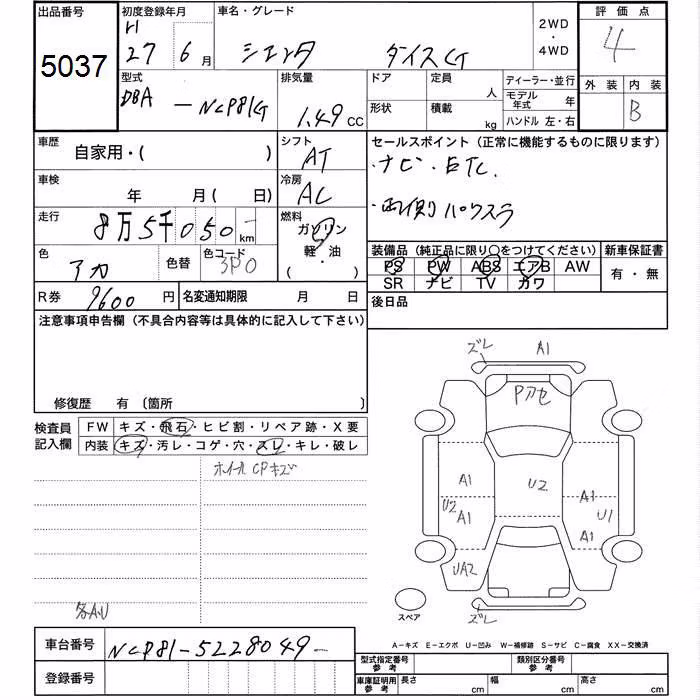 出品番号 初度登録年月 車名・グレード 2WD・4WD 評価点
5037 H27 6月 シエンタ ダイスG 4
型式 排気量 ドア 定員 人 ディーラー・並行 外装 内装
DBA-NCP81G 1.49cc 形状 積載 kg モデル年式 年 B
ハンドル 左・右
車歴 自家用・( ) シフト AT セールスポイント(正常に機能するものに限ります)
・ナビ・ETC
車検 年 月(日) 冷房 AC
・両側パワスラ
走行 8万5千050km 燃料 ガソリン 軽・油 ( ・ )
装備品(純正品に限り〇をつけてください) 新車保証書
色 アカ 色替 色コード 3P0 PS PW ABS エアB AW 有・無
SR ナビ TV カワ
R券 9600円 名変通知期限 月 日 後日品
注意事項申告欄(不具合内容等は具体的に記入して下さい)
修復歴 有 〔箇所 〕
ズレ A1
Pアセ
検査員記入欄 FW キズ・飛石・ヒビ割・リペア跡・X要
内装 キズ・汚レ・コゲ・穴・スレ・キレ・破レ
ホイールCPキズ
A1 U2 A1
U2 A1 U1
A1
UA2
各AU
スペア ズレ
A-キズ E-エクボ U-凹み W-補修跡 S-サビ C-腐食 XX-交換済
車台番号 NCP81-5228049-
型式指定番号 参考 類別区分番号 参考
登録番号 車庫証明用 参考 長さ cm 幅 cm 高さ cm